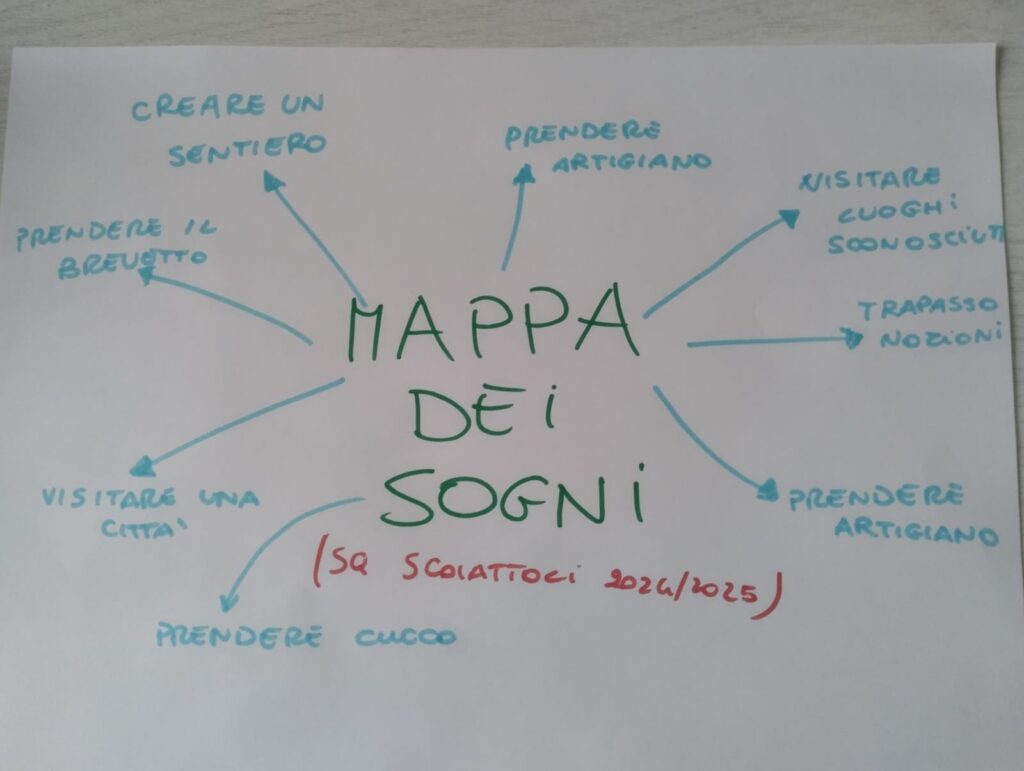 CREARE UN
SENTIERO
PRENDERE
ARTIGIANO
VISITARE
CUOGHI
SCONOSCIUTI
PRENDERE IL
BREVETTO
TRAPASSO
NOZIONI
MAPPA
DEI
SOGNI
(SQ SCOIATTOLI 2024/2025)
VISITARE UNA
CITTA'
PRENDERE
ARTIGIANO
PRENDERE CUCCO